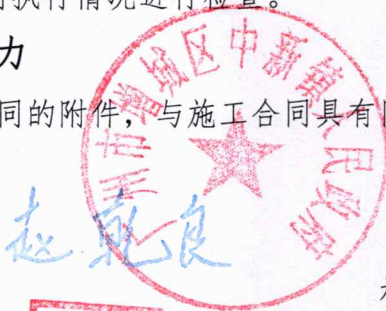 执行情况进行检查。
力
同的附件，与施工合同具有
州市增城区中新镇人民政府
赵乾良